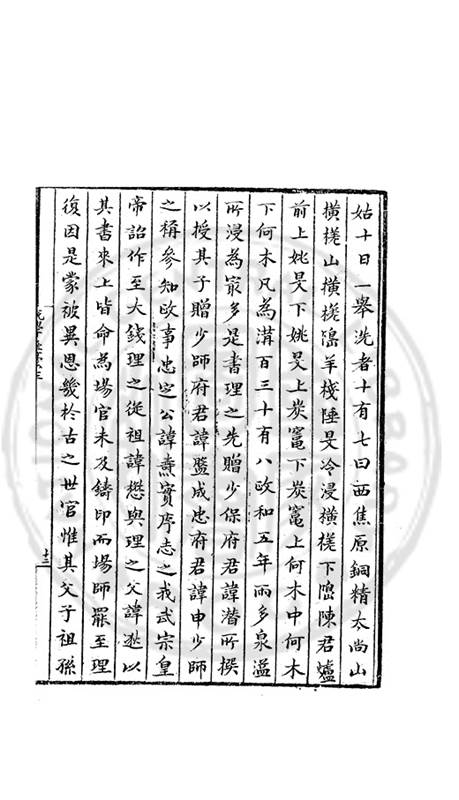 姑十日一舉洗者十有七曰西焦原銅精大尚山
橫槎山橫槎塢羊棧陲旻冷浸橫槎下陳君爐
前上姚旻下姚旻上炭竈下炭竈上何木中何木
下何木凡為溝百三十有八政和五年雨多泉溢
所浸為冣多是書理之先贈少保府君諱潛所撰
以授其子贈少師府君諱盤成忠府君諱申少師
之稱參知政事忠定公諱燾實序志之我武宗皇
帝詔作至大錢理之從祖諱懋與理之父諱逖以
其書來上皆命為場官未及鑄印而場師罷至理
復因是蒙被異恩幾於古之世官惟其父子祖孫
十三